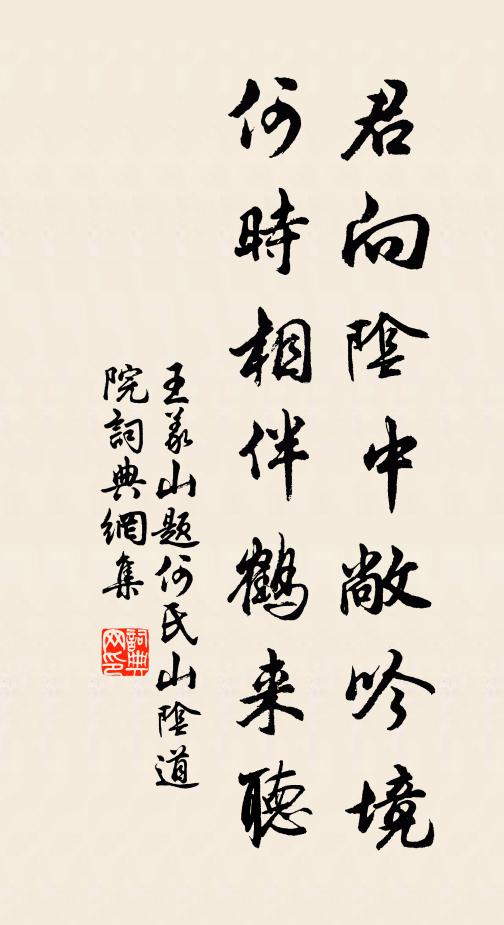 君向陰中敞吟境
何時相伴鶴来聽
王義山題何氏山陰道
院詞典網集
詞典网印